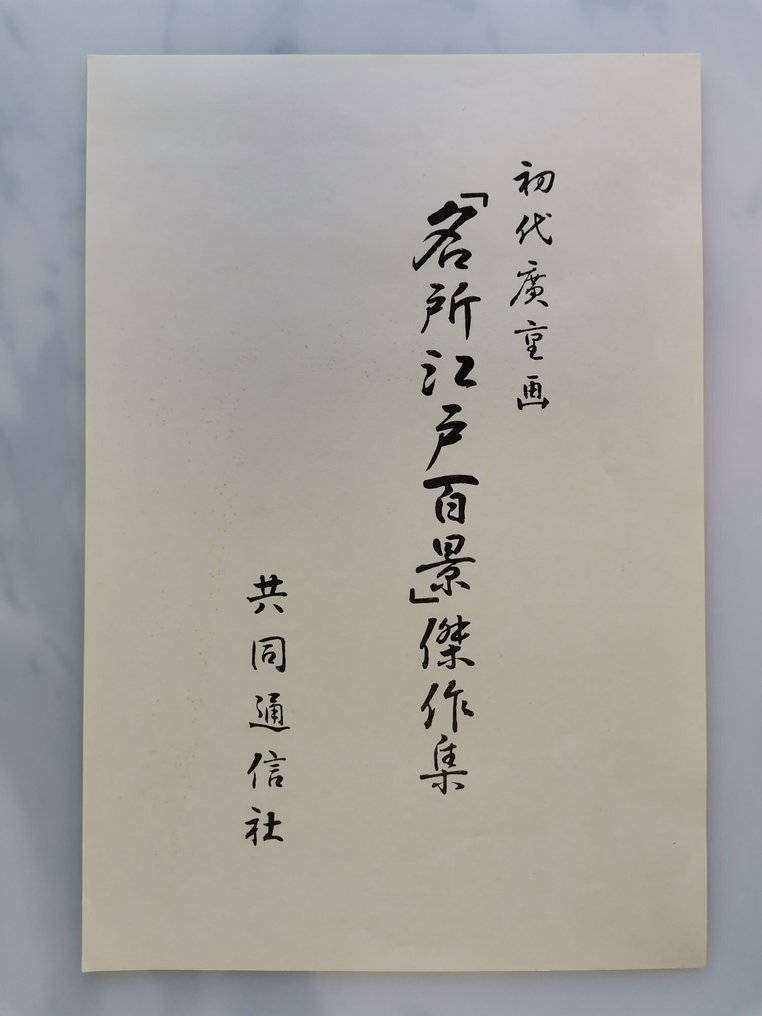 初代廣重画
「名所江戸百景」傑作集
共同通信社